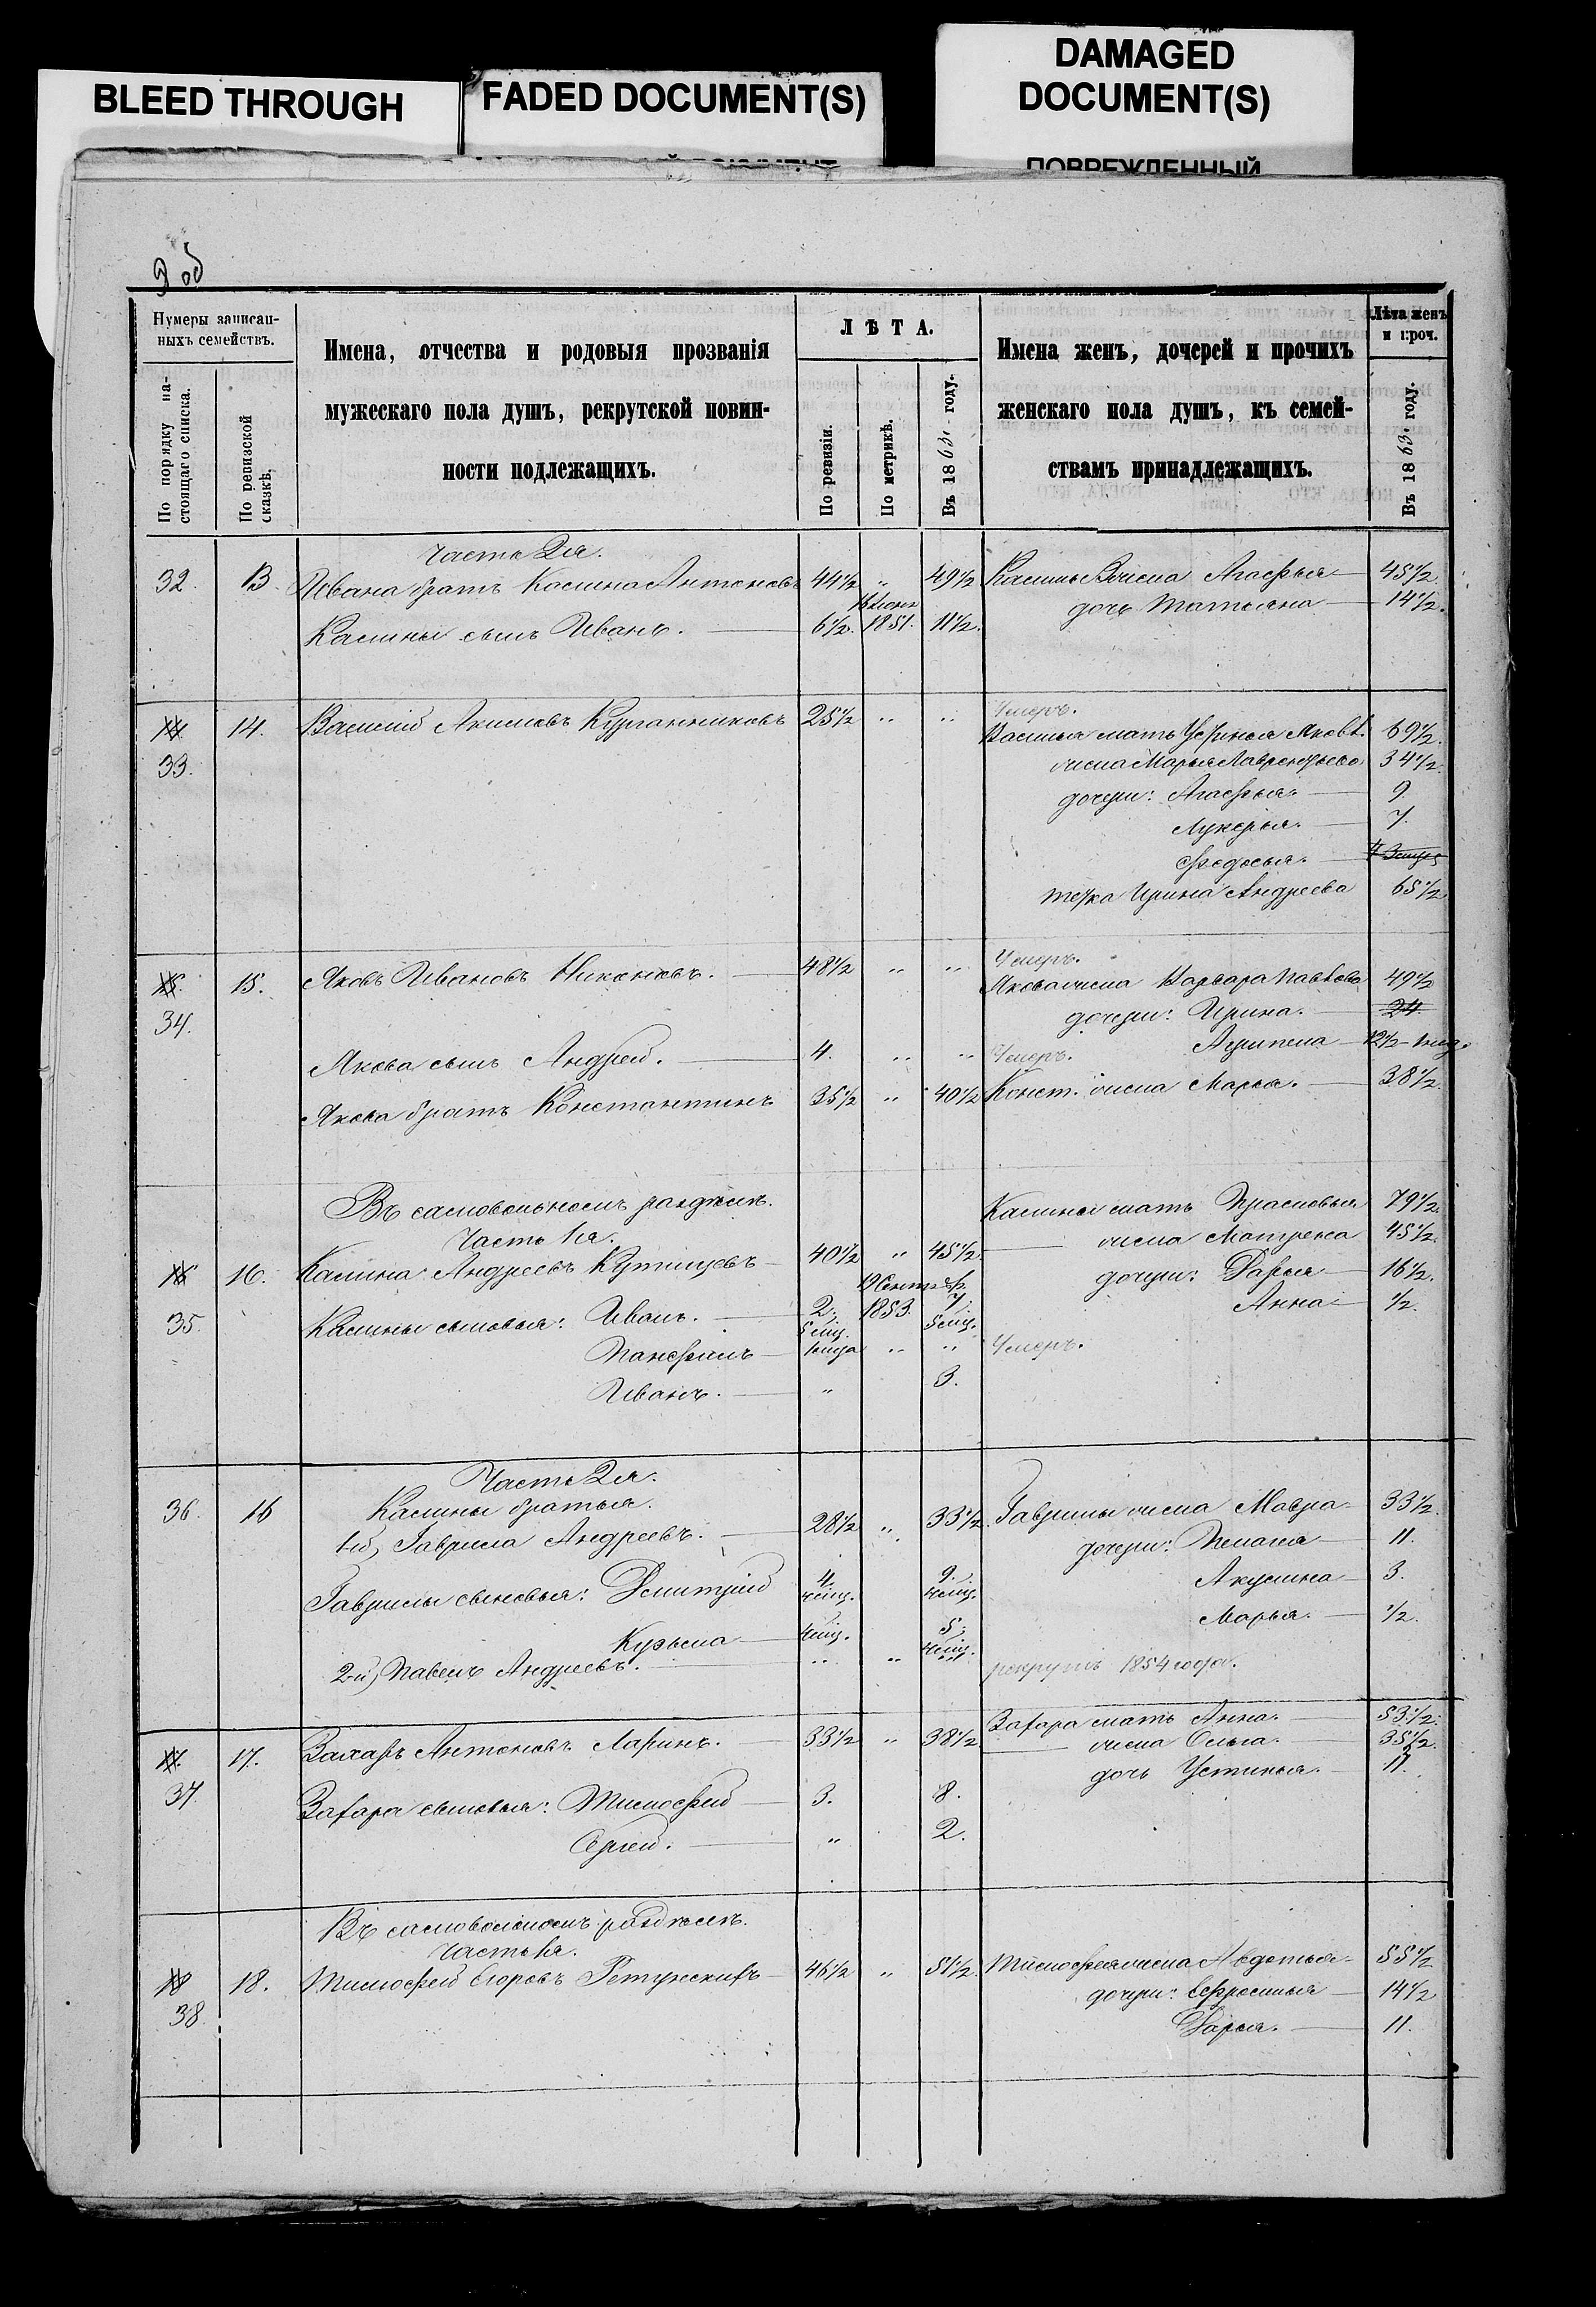 BLEED THROUGH
FADED DOCUMENT(S)
DAMAGED
DOCUMENT(S)
ПОВРЕЖДЕННЫЙ
9 об
Нумеры записан-
ныхъ семействъ.
По порядку на-
стоящаго списка.
По ревизской
сказкѣ.
Имена, отчества и родовыя прозванія
мужескаго пола душъ, рекрутской повин-
ности подлежащихъ.
ЛѢТА.
По ревизіи.
По метрикѣ.
Въ 1863 году.
Имена женъ, дочерей и прочихъ
женскаго пола душъ, къ семей-
ствамъ принадлежащихъ.
Лѣта женъ
и проч.
Въ 1863 году.
Часть 2я.
32. 13 Ивана братъ Калина Антоновъ 44½ " 49½ Калины жена Агафья 45½.
дочь Татьяна 14½.
Калины сынъ Иванъ. 6½. 1851. 11½.
Умеръ.
14 14. Василій Акимовъ Курганниковъ 25½ " "
33. Василья мать Устинья Яковл. 69½.
жена Марья Лаврентьева 34½.
дочери: Агафья. 9
Лукерья. 7.
Федосья.
тетка Ирина Андреева 65½
15 15. Яковъ Ивановъ Никоновъ. 48½ " " Умеръ.
34. Якова жена Варвара Павлова 49½
дочери: Ирина. 24
Акулина
Якова сынъ Андрей. 4. " " Умеръ.
Якова братъ Константинъ 35½ " 40½ Конст. жена Марья. 38½
Въ самовольномъ раздѣлѣ.
Часть 1я.
Калины мать Прасковья 79½.
16 16. Калина Андреевъ Кутищевъ 40½ " 45½. жена Матрена 45½.
35. дочери: Дарья 16½.
Анна ½.
Калины сыновья: Иванъ. 2. 5 мц. 19 Сентября 1853. 7. 5 мц.
Панфилъ " " Умеръ.
Иванъ. " 3.
Часть 2я.
36. 16 Калины братья.
1-й, Гаврила Андреевъ. 28½ " 33½. Гаврилы жена Мавра 33½.
дочери: Пелагея 11.
Гаврилы сыновья: Дмитрій 4. 9. Акулина 3.
Кузьма 5. Марья. ½.
2-й, Павелъ Андреевъ. " " " рекрутъ 1854 года.
17. 17. Захаръ Антоновъ Ларинъ. 33½ " 38½ Захара мать Анна. 53½.
37. жена Ольга. 35½.
дочь Устинья. 11.
Захара сыновья: Тимофей 3. 8.
Сергей. " 2.
Въ самовольномъ раздѣлѣ.
Часть 1я.
18 18. Тимофей Егоровъ Ретунскихъ 46½ " 51½. Тимофея жена Авдотья 55½
38. дочери: Ефросинья 14½
Дарья. 11.